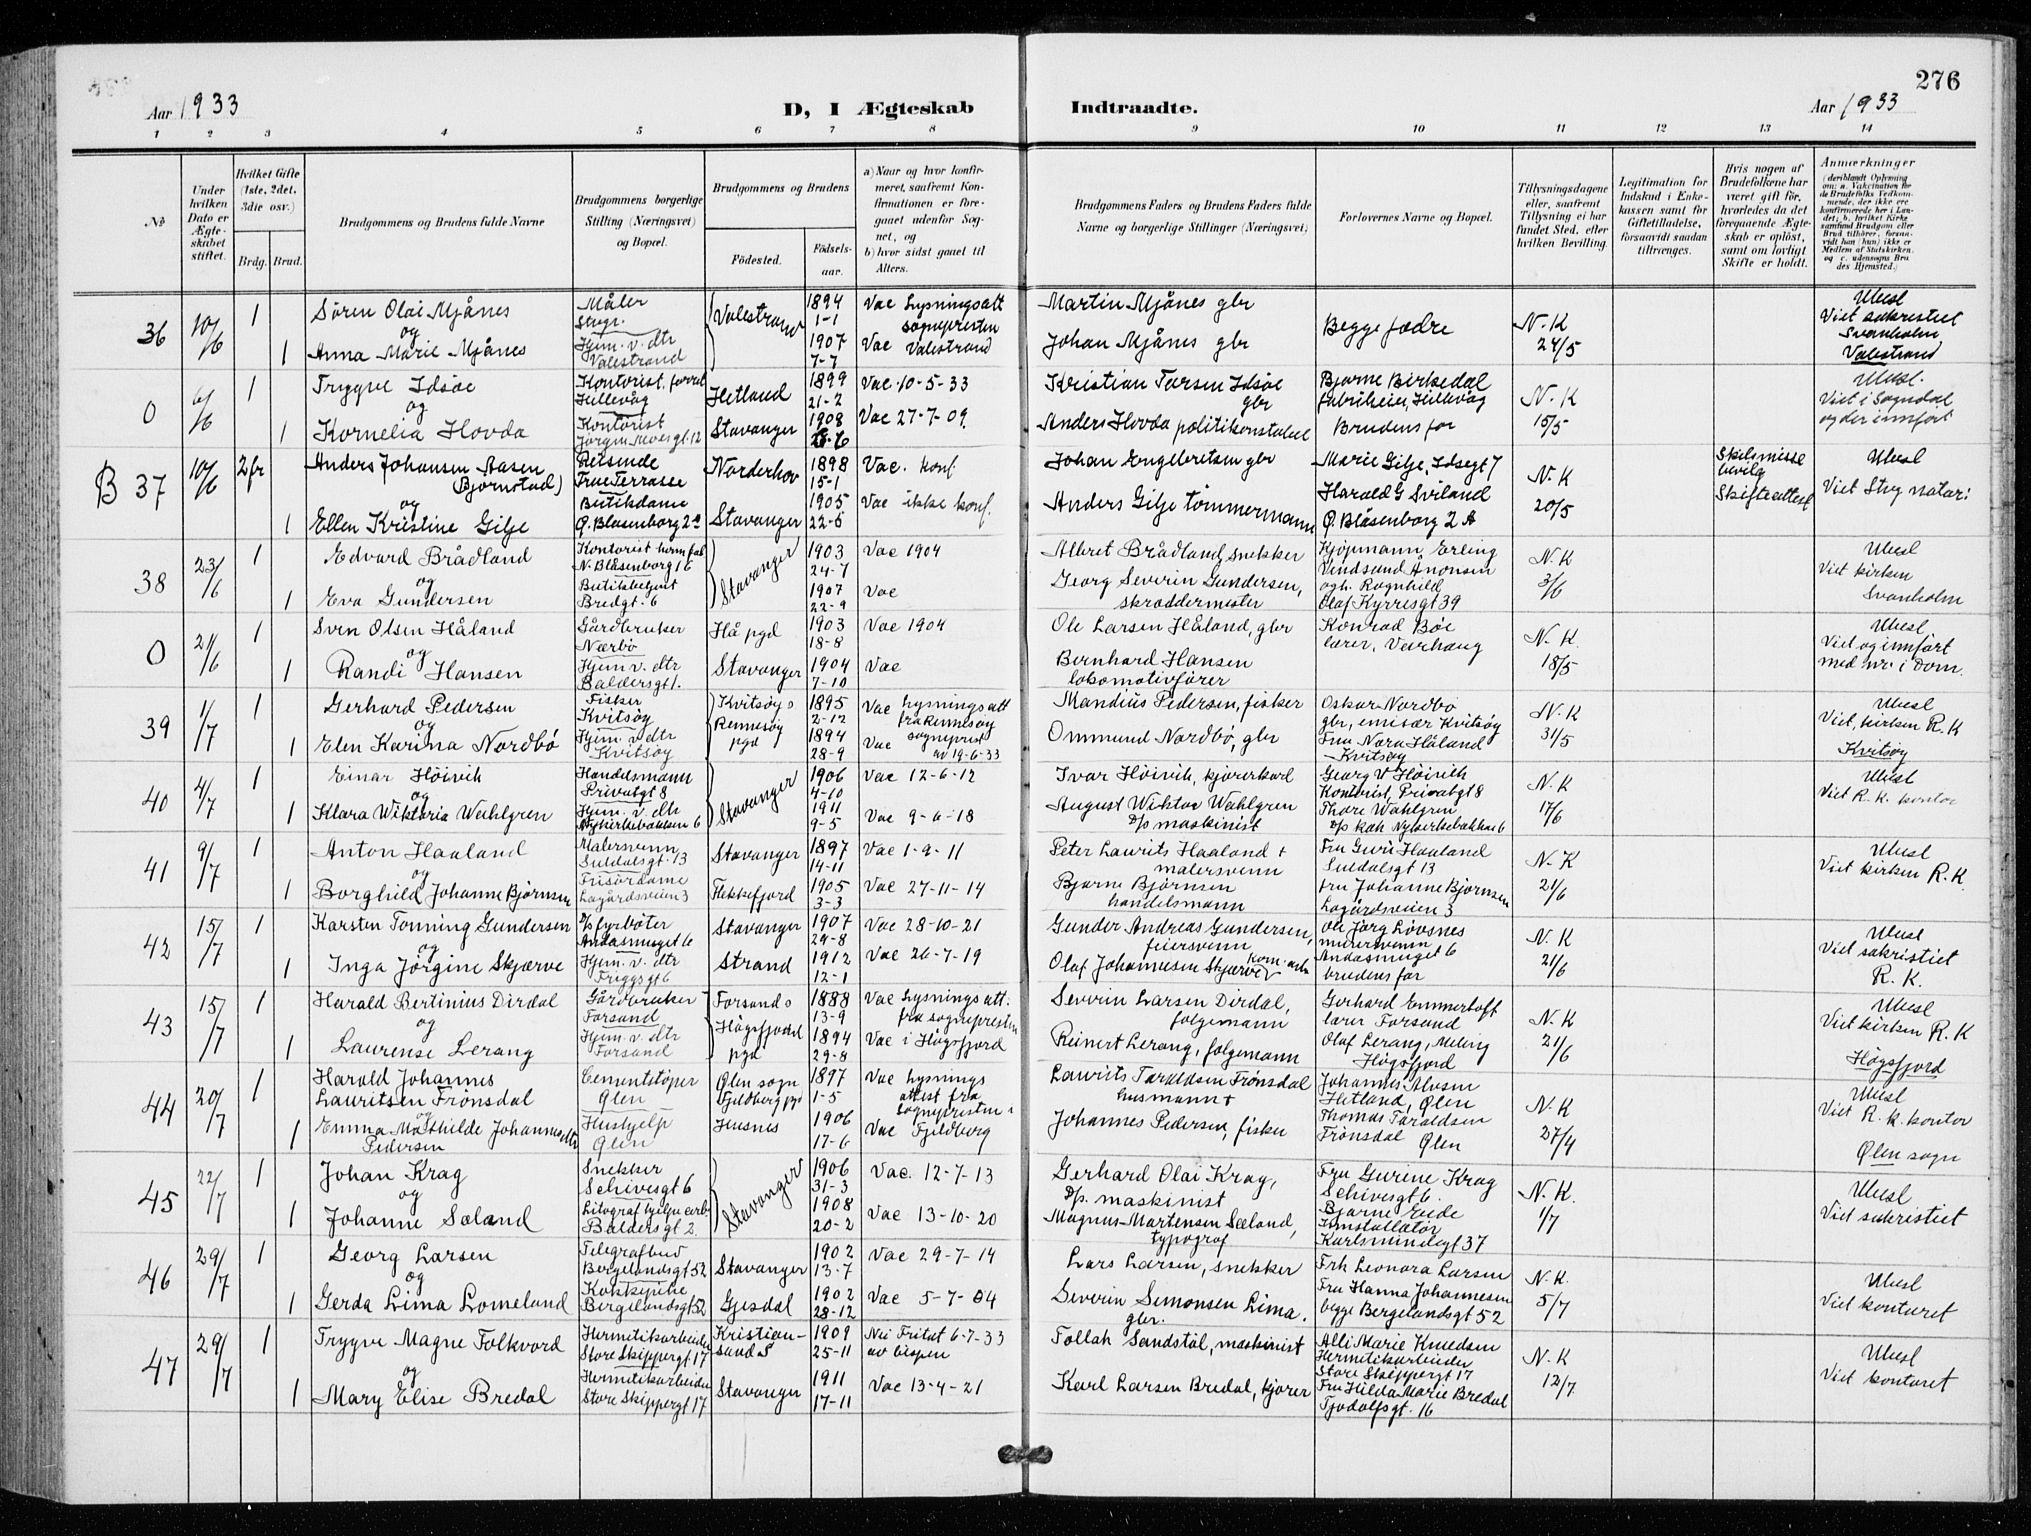 276
Aar 1933
D, I Ægteskab
Indtraadte.
Aar 1933
1 2 3 4 5 6 7 8 9 10 11 12 13 14
No
Under hvilken Dato er Ægteskabet stiftet.
Hvilket Gifte (1ste, 2det, 3die osv.)
Brdg. Brud.
Brudgommens og Brudens fulde Navne
Brudgommens borgerlige Stilling (Næringsvei) og Bopæl.
Brudgommens og Brudens
Fødested.
Fødselsaar.
a) Naar og hvor konfirmeret, saafremt Konfirmationen er foregaaet udenfor Sognet, og
b) hvor sidst gaaet til Alters.
Brudgommens Faders og Brudens Faders fulde Navne og borgerlige Stillinger (Næringsvei)
Forlovernes Navne og Bopæl.
Tillysningsdagene eller, saafremt Tillysning ei har fundet Sted, efter hvilken Bevilling.
Legitimation for Indskud i Enkekassen samt for Giftetilladelse, forsaavidt saadan tiltrænges.
Hvis nogen af Brudefolkene har været gift før, hvorledes da det foregaaende Ægteskab er opløst, samt om lovligt Skifte er holdt.
Anmærkninger
36 10/6 1 Søren Olai Mjånes Måler Valestrand 1894 1-1 Vac Lysningsatt Martin Mjånes gbr Begge fædre N.K 24/5 Viet sakristiet
og sognepresten Svanholm
1 Anna Marie Mjånes Hjem. v. dtr Valestrand 1907 7-7 Vac Valestrand Johan Mjånes gbr Valestrand
0 6/6 1 Trygve Idsøe Kontorist, Hillevåg Hetland 1899 21-2 Vac 10-5-33 Kristian Tarsen Idsøe gbr Bjarne Birkedal fabrikeier, Hillevåg N.K 15/5 Viet i Sogndal
og og der innført
1 Kornelia Hovda Kontorist Stavanger 1908 Vac 27-7-09. Anders Hovda politikonstabel Brudens far
B 37 10/6 2 fr Anders Johansen Aasen Bjørnstad) Reisende Frue Terrasse Norderhov 1898 15-1 Vac. konf. Johan Engebretsen gbr Marie Gilje, Idsegt 7 N.K 20/5 Skilsmisse bevilg Skifteattest
og Harald G Sviland Viet Stvg notar:
1 Ellen Kristine Gilje Butikdame Ø. Blåsenborg 2a Stavanger 1905 22-5 Vac ikke konf. Anders Gilje tømmermann Ø. Blåsenborg 2 A
38 23/6 1 Edvard Brådland Kontorist N. Blåsenborg 16 Stavanger 1903 24-7 Vac 1904 Albret Brådland, snekker Kjøpmann Erling N.K 3/6 Viet kirken
og Svanholm
1 Eva Gundersen Butikbetjent Bredgt. 6 1907 22-9 Vac Georg Severin Gundersen, skreddermester Ragnhild Olaf Kyrresgt 39
0 2/6 1 Sven Olsen Håland Gårdbruker Nærbø Hå pgd 1903 18-8 Vac 1904 Ole Larsen Håland, gbr Konrad Bøe lærer, Varhaug N.K. 18/5 Viet og innført
og med nr. i Dom.
1 Randi Hansen Hjem. v. dtr Baldersgt 1. Stavanger 1904 7-10 Vac Bernhard Hansen lokomotivfører
39 1/7 1 Gerhard Pedersen Fisker Kvitsøy Kvitsøy s 1895 2-12 Vac Lysningsatt Mandius Pedersen, fisker Oskar Nordbø gbr, emisær Kvitsøy N.K 31/5 Viet, kirken R.K
og Rennesøy pgd fra Rennesøy sogneprest
1 Elen Karina Nordbø Hjem. v. dtr Kvitsøy 1894 28-9 Vac av 19-6-33 Ommund Nordbø, gbr Fru Nora Håland Kvitsøy Kvitsøy
40 4/7 1 Einar Høivik Handelsmann Privatgt 8 Stavanger 1906 4-10 Vac 12-6-12 Ivar Høivik, kjørerkarl Georg V Høivik Kontorist, Privatgt 8 N.K 17/6 Viet R.K. kontor
og
1 Klara Wiktoria Wahlgren Hjem. v. dtr Nykirkebakken 6 1911 9-5 Vac 9-6-18 August Wiktor Wahlgren D/p maskinist Thore Wahlgren Nykirkebakken 6
41 9/7 1 Anton Haaland Malersvenn Suldalsgt. 13 Stavanger 1897 14-11 Vac 1-9-11 Peter Laurits Haaland + malersvenn Fru Guri Haaland Suldalsgt 13 N.K 21/6 Viet kirken R.K.
og
1 Borghild Johanne Bjørnsen Frisørdame Lagårdsveien 3 Flekkefjord 1905 3-3 Vac 27-11-14 Bjarne Bjørnsen handelsmann fru Johanne Bjørnsen Lagårdsveien 3
42 15/7 1 Karsten Tonning Gundersen D/s fyrbøter Andasmuget 6 Stavanger 1907 29-8 Vac 28-10-21 Gunder Andreas Gundersen, feiersvenn Ole Jørg Løvsnes murersvenn Andasmuget 6 N.K 21/6 Viet sakristiet
og R.K.
1 Inga Jørgine Skjærve Hjem. v. dtr Friggsgt 6 Strand 1912 12-1 Vac 26-7-19 Olaf Johannesen Skjærve kom. arb brudens far
43 15/7 1 Harald Bertinius Dirdal Gårdbruker Forsand Forsand s 1888 13-9 Vac Lysningsatt. Severin Larsen Dirdal, følgemann Gerhard Emmertoft lærer Forsand N.K 21/6 Viet kirken R.K
og Høgsfjord pgd fra sognepresten
1 Laurense Lerang Hjem. v. dtr Forsand 1894 29-8 Vac i Høgsfjord Reinert Lerang, følgemann Olaf Lerang, Meling Høgsfjord Høgsfjord
44 20/7 1 Harald Johannes Lauritsen Frønsdal Cementstøper Ølen Ølen sogn Fjeldberg pgd 1897 1-5 Vac Lysnings attest fra Laurits Taraldsen Frønsdal husmann + Johannes Alvsen Hetland, Ølen N.K 27/4 Viet R.K. kontor
og sognepresten i
1 Emma Mathilde Johannesdtr Pedersen Hushjelp Ølen Husnes 1906 17-6 Vac Fjeldberg Johannes Pedersen, fisker Thomas Taraldsen Frønsdal Ølen Ølen sogn
45 22/7 1 Johan Krag Snekker Schivesgt 6 Stavanger 1906 31-3 Vac. 12-7-13 Gerhard Olai Krag, D/p. maskinist Fru Gurine Krag Schivesgt 6. N.K. 1/7 Viet sakristiet
og
1 Johanne Sæland Baldersgt 2. 1908 20-2 Vac 13-10-20 Magnus Martensen Sæland, typograf Bjarne Eide Installatør Karlsminnegt 37
46 29/7 1 Georg Larsen Telegrafbud Bergelandsgt 52 Stavanger 1902 13-7 Vac 29-7-14 Lars Larsen, snekker Frk Leonora Larsen N.K. 5/7 Viet kontoret
og
1 Gerda Lima Lomeland Kokkepike Bergelandsgt 52 Gjesdal 1902 28-12 Vac 5-7-04 Severin Simonsen Lima. gbr. Fru Hanna Johannesen begge Bergelandsgt 52
47 29/7 1 Trygve Magne Folkvord Hermetikarbeider Store Skippergt 17 Kristiansand S 1909 25-11 Nei Fritat 6-7-33 av bispen Tollak Sandstøl, maskinist Alli Marie Knudsen Hermetikarbeider Store Skippergt 17 N.K 12/7 Viet kontoret
og
1 Mary Elise Bredal Hermetikarbeider Store Skippergt 17 Stavanger 1911 17-11 Vac 13-4-21 Karl Larsen Bredal, kjører Fru Hilda Marie Bredal Tjodolfsgt. 16